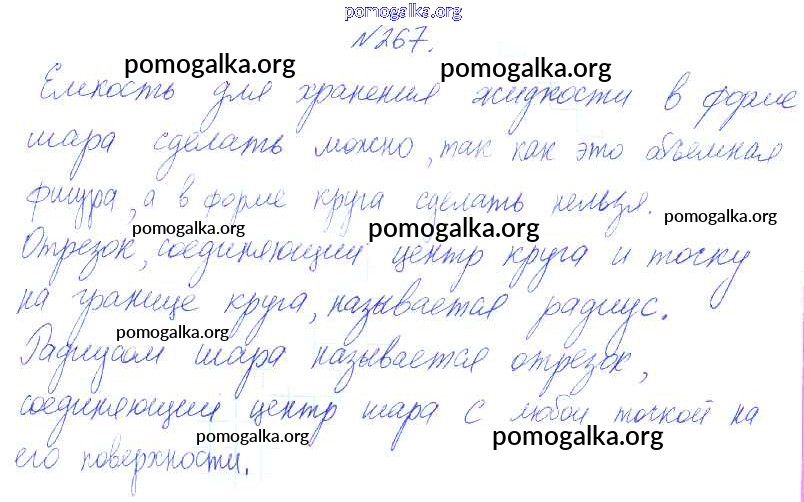 pomogalka.org
№267.
pomogalka.org pomogalka.org
Емкость для хранения жидкости в форме
шара сделать можно, так как это объемная
фигура, а в форме круга сделать нельзя.
pomogalka.org pomogalka.org pomogalka.org
Отрезок, соединяющий центр круга и точку
на границе круга, называется радиус.
pomogalka.org
Радиусом шара называется отрезок,
соединяющий центр шара с любой точкой на
pomogalka.org pomogalka.org
его поверхности.